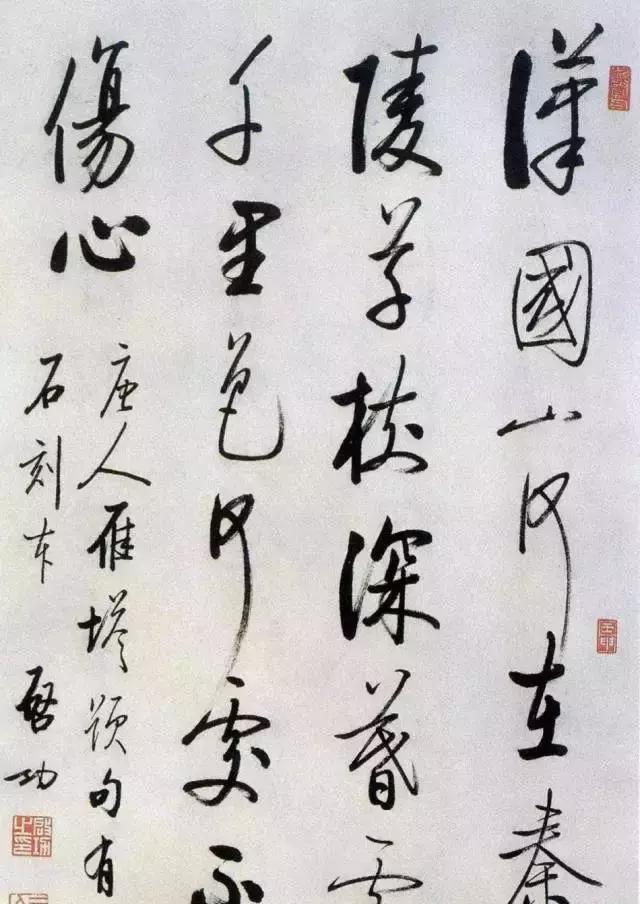 漢國山河在秦
陵草樹深暮雲
千里色何處不
傷心
唐人雁塔題句有
石刻本
啟功
啟功之印